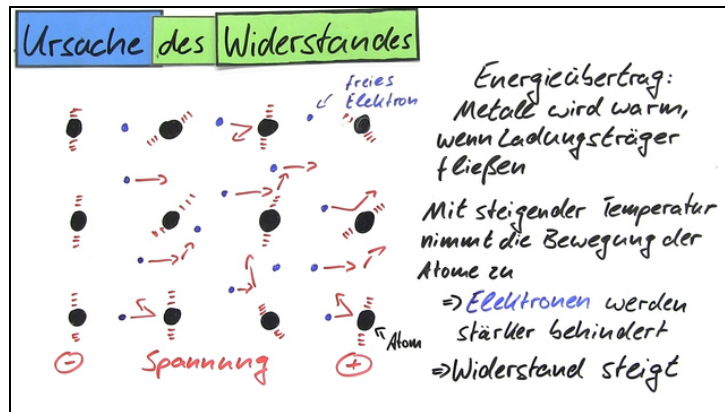 Ursache des Widerstandes
freies
Elektron
Energieübertrag:
Metall wird warm,
wenn Ladungsträger
fließen
Mit steigender Temperatur
nimmt die Bewegung der
Atome zu
⇒ Elektronen werden
stärker behindert
⇒ Widerstand steigt
Atom
- Spannung +